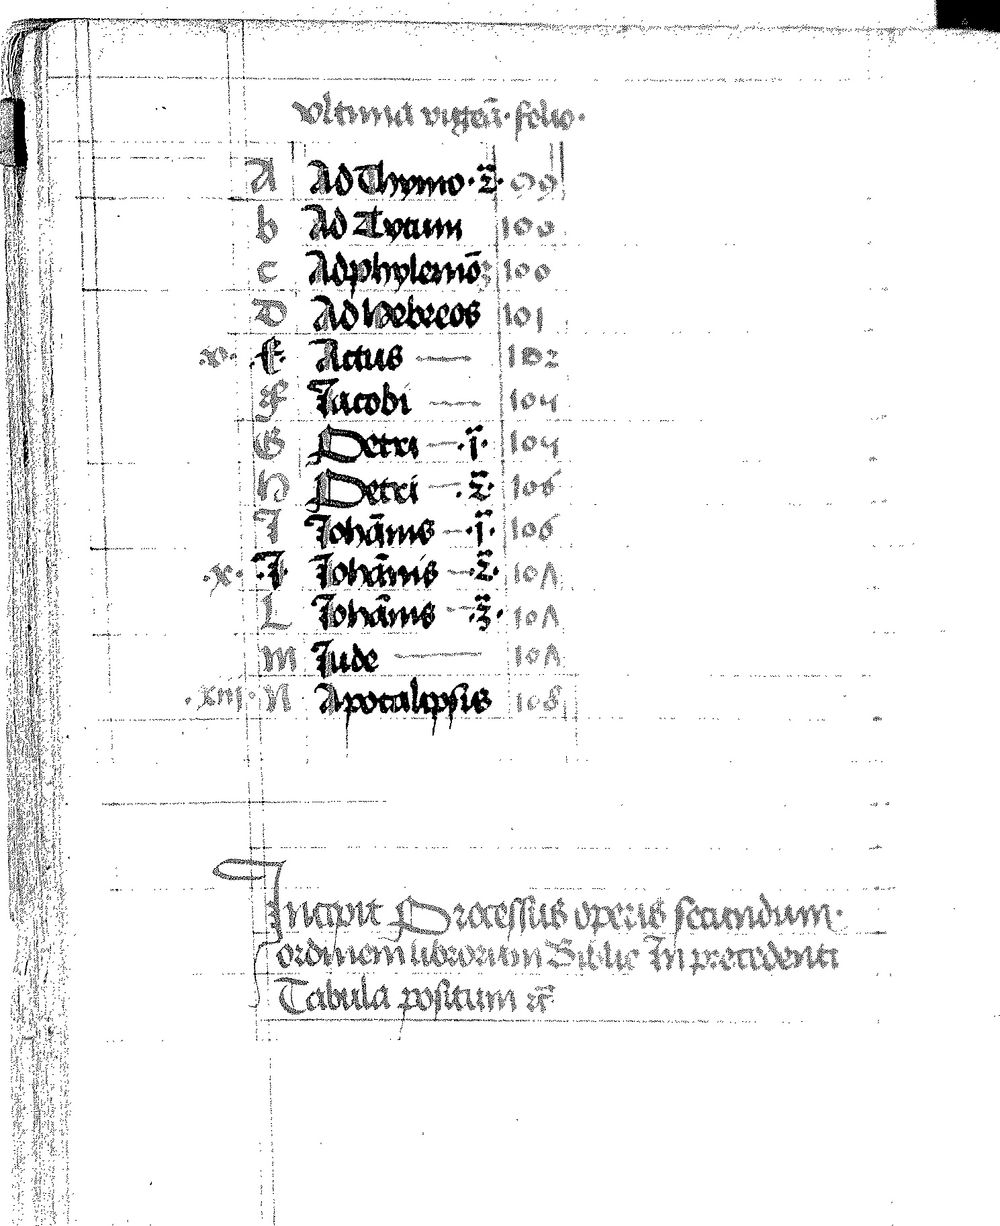 vltima vigeã · folio ·
A Ad Thymo · 2 · 99
b Ad Tytum 100
c Ad phylemõ 100
D Ad Hebreos 101
·v· E Actus — 102
F Jacobi — 104
G Petri — · 1 · 104
H Petri — · 2 · 106
I Johãnis — · 1 · 106
·x· J Johãnis — · 2 · 10Λ
L Johãnis — · 3 · 10Λ
m Jude — 10Λ
·xiii· N Apocalipsis 108
Incipit Processus operis secundum ·
ordinem librorum Biblie In precedenti
Tabula positum